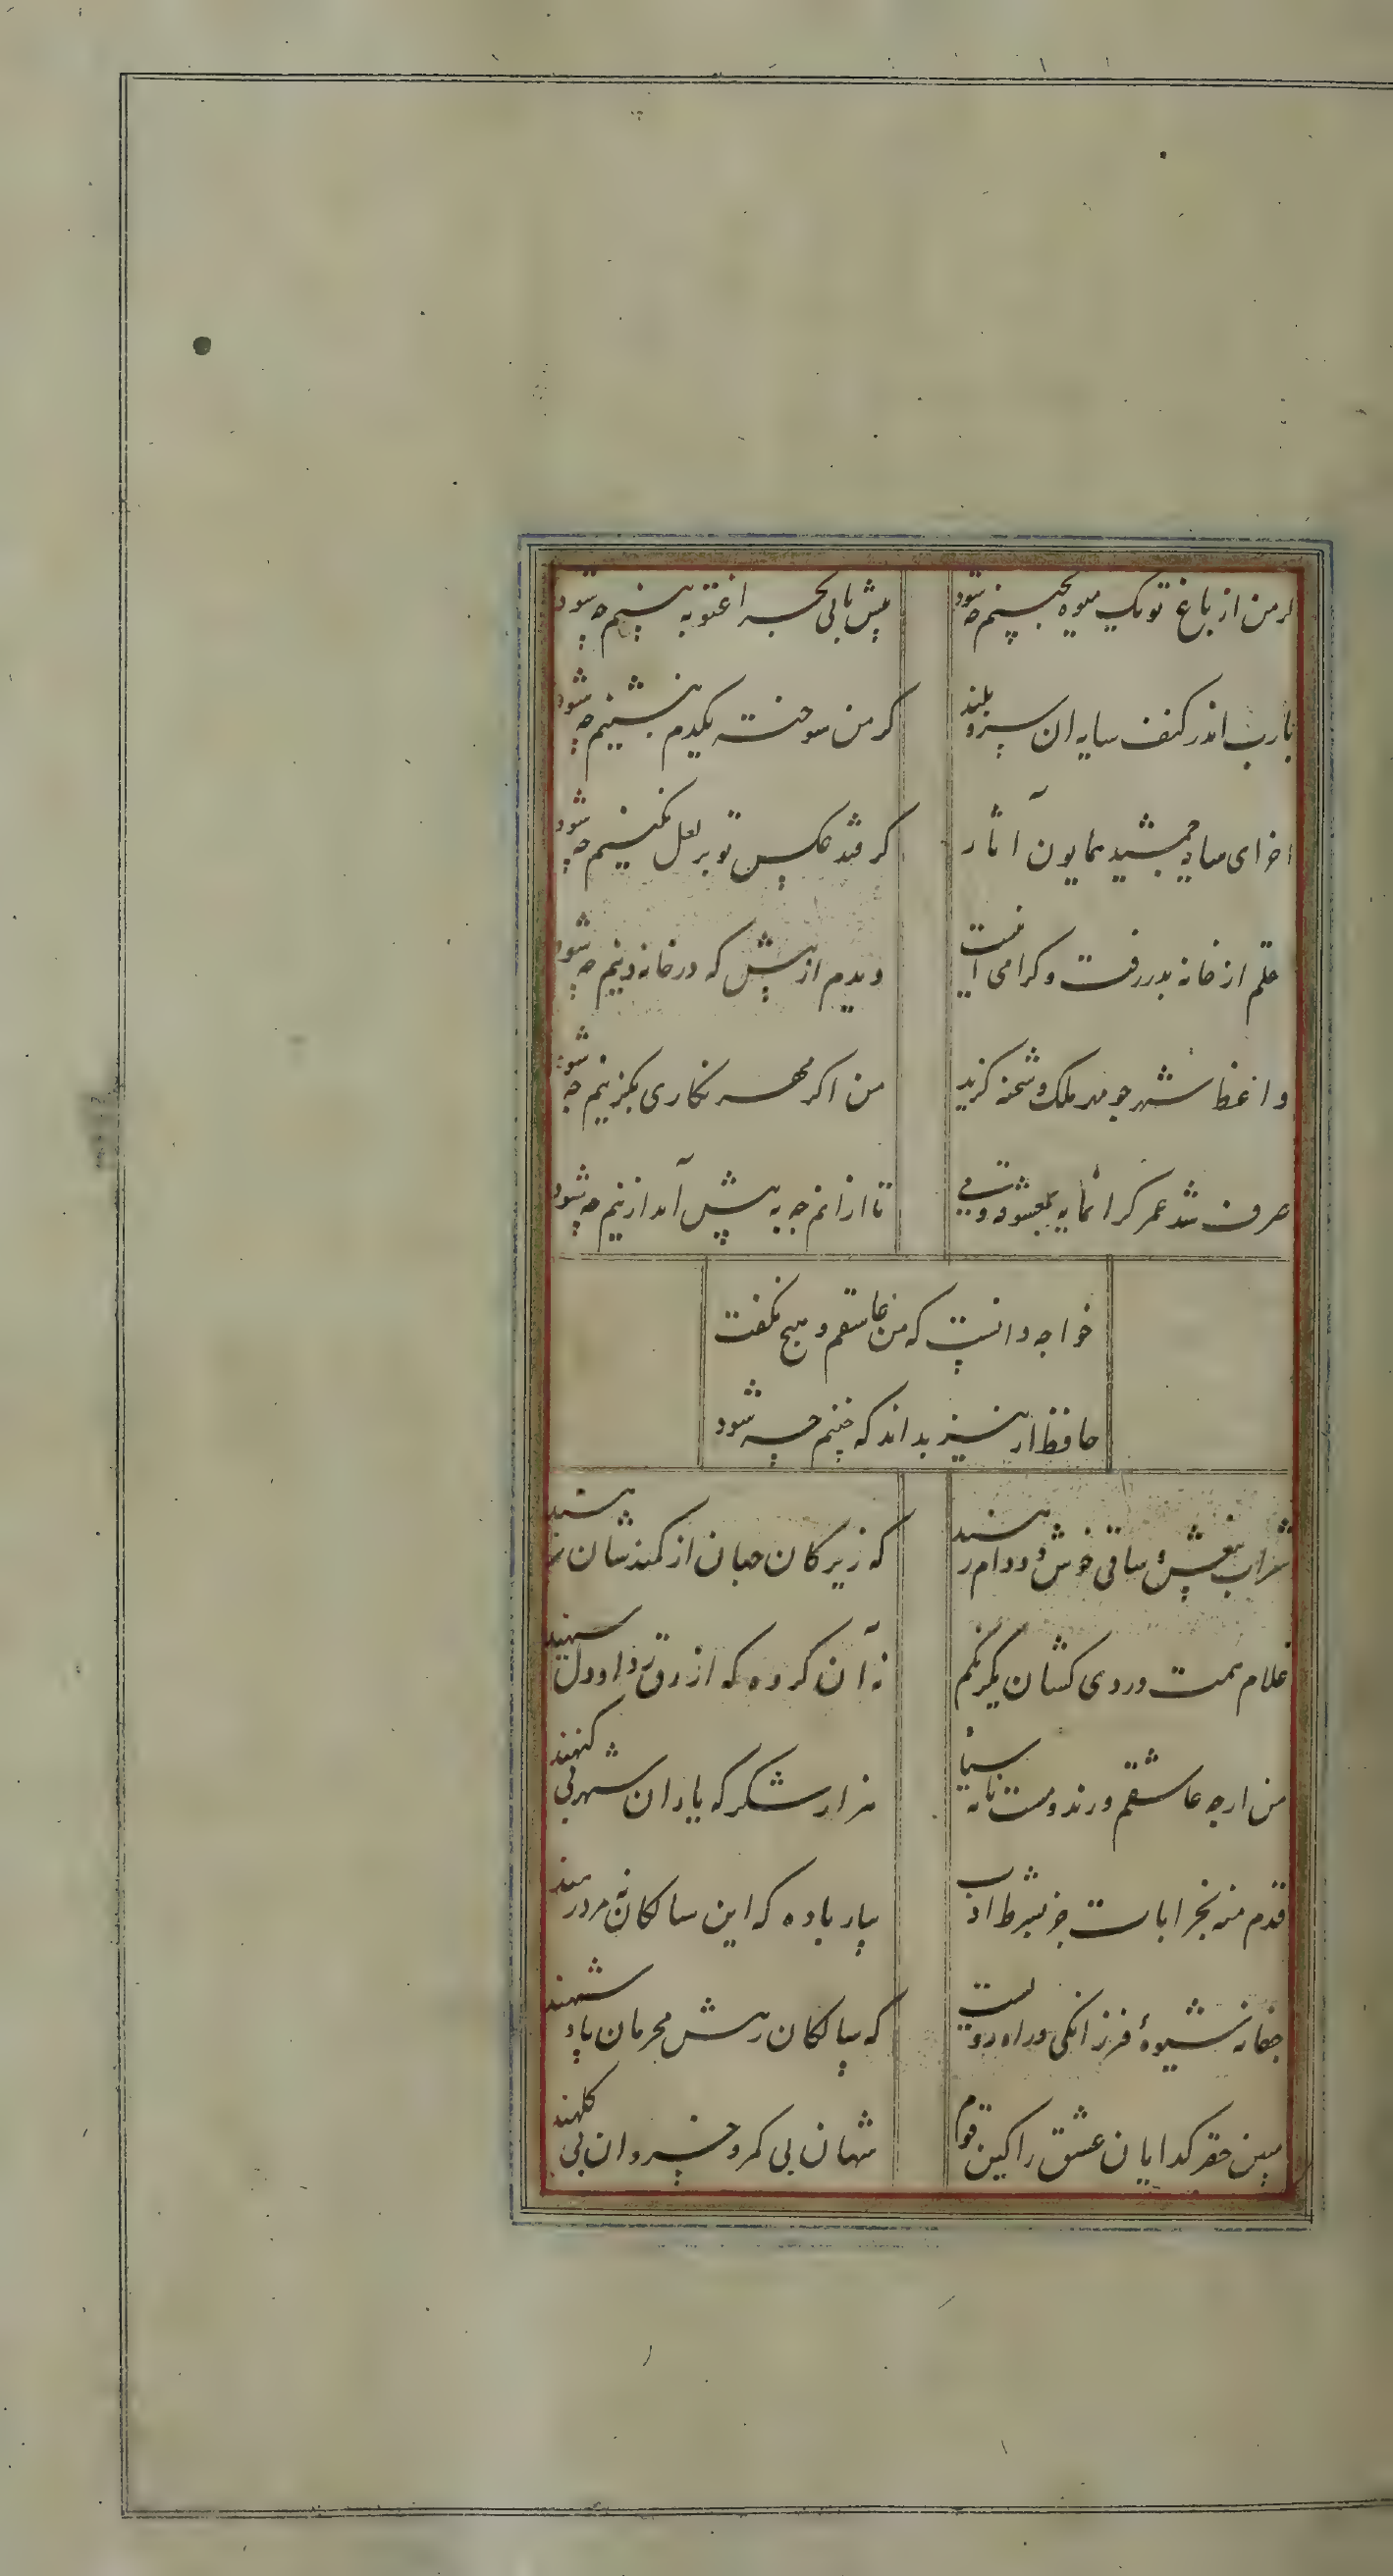 گر من از باغ تو یک میوه بچینم چه شود
پیش پایی بچراغ تو به بینم چه شود
یارب اندر کنف سایه آن سرو بلند
کر من سوخته یکدم بنشینم چه شود
اخر ای خاتم جمشید همایون آثار
کر فتد عکس تو بر لعل نکینم چه شود
عقلم از خانه بدر رفت و کر می اینست
دیدم از پیش که در خانه دینم چه شود
واعظ شهر چو مهر ملک و شحنه کزید
من اکر مهر نکاری بکزینم چه شود
صرف شد عمر کرانمایه بمعشوقه و می
تا از انم چه به پیش آمد ازینم چه شود
خواجه دانست که من عاشقم و هیچ نکفت
حافظ ار نیز بداند که چنینم چه شود
شراب بیغش و ساقی خوش دو دام رهند
که زیرکان جهان از کمندشان نرهند
غلام همت دردی کشان یکرنکم
نه آن کروه که ازرق ردا و دل سیهند
من ارچه عاشقم و رند و مست و نامه سیاه
هزار شکر که یاران شهر بی کنهند
قدم منه بخرابات جز بشرط ادب
بیار باده که این سالکان نه مرد رهند
جفا نه شیوهٔ فرزانکی و راه رویست
که سالکان رهش محرمان پادشهند
مبین حقر کدایان عشق را کین قوم
شهان بی کمر و خسروان بی کلهند